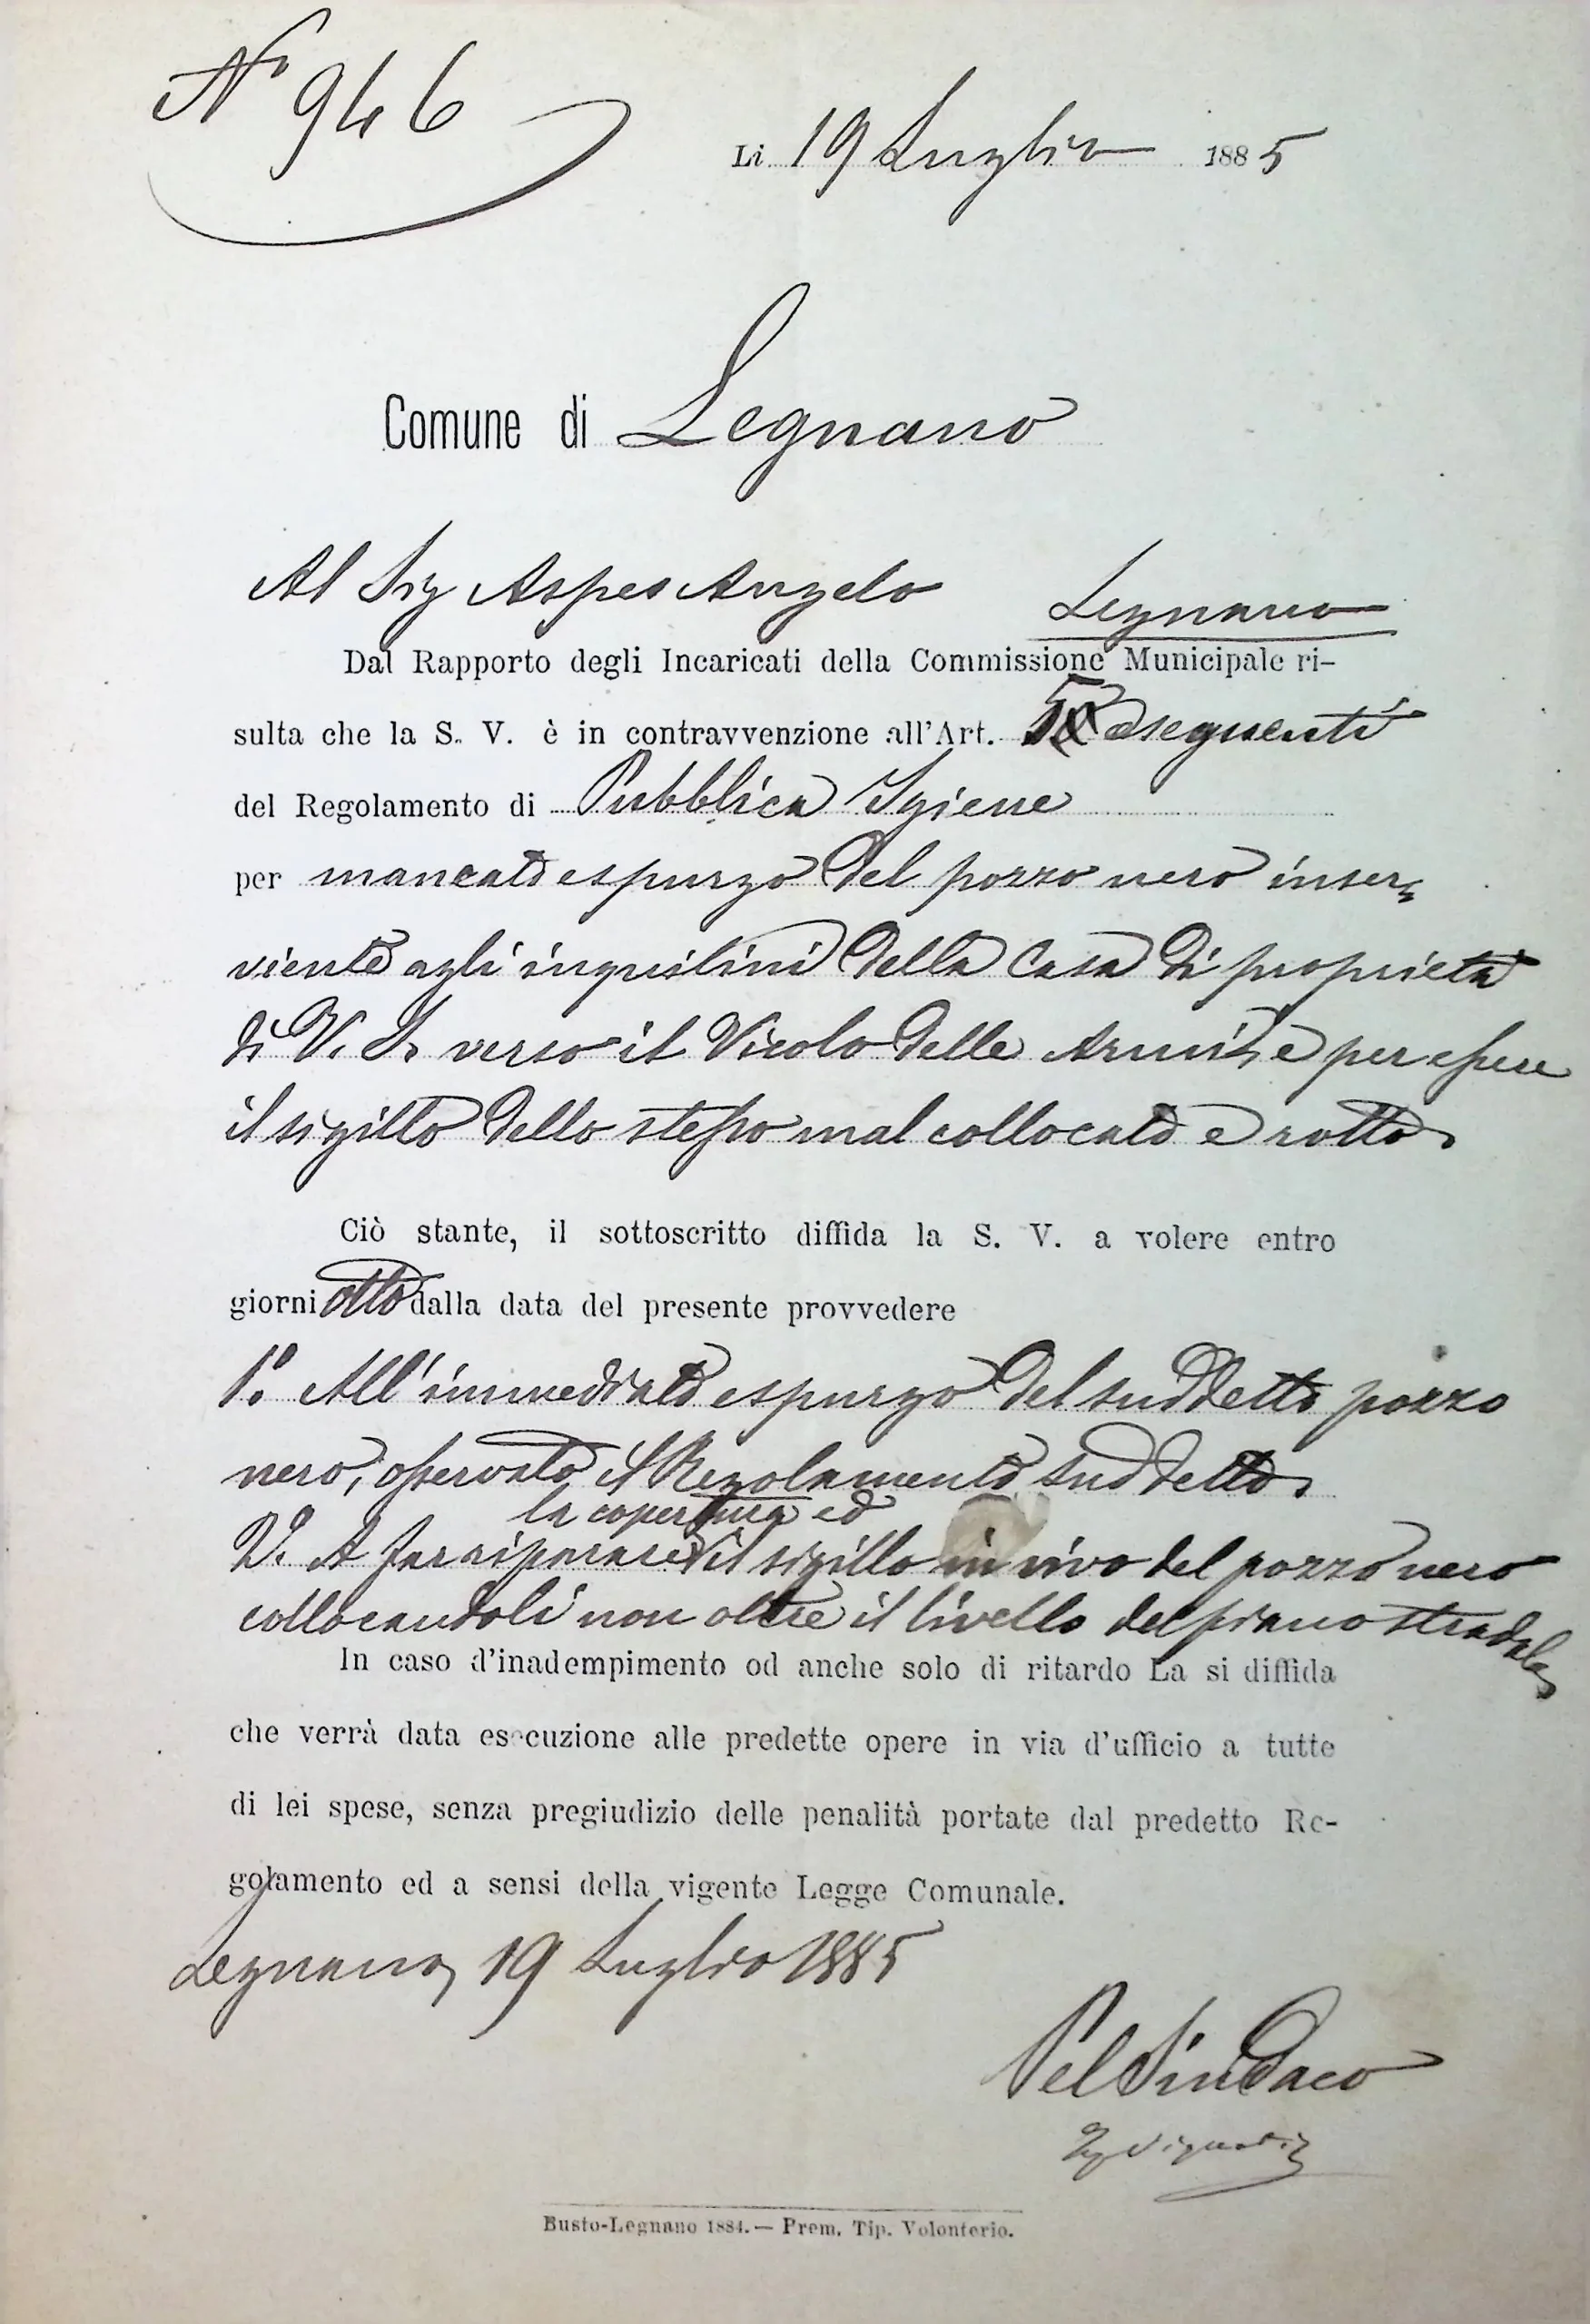 N° 946
Li 19 Luglio 1885
Comune di Legnano
Al Sig Aspes Angelo
Legnano
Dal Rapporto degli Incaricati della Commissione Municipale ri-
sulta che la S. V. è in contravvenzione all'Art. e seguenti
del Regolamento di Pubblica Igiene
per mancato espurgo del pozzo nero inser=
viente agli inquilini della Casa di proprietà
di V. S. verso il Vicolo delle e per essere
il sigillo dello stesso mal collocato e rotto.
Ciò stante, il sottoscritto diffida la S. V. a volere entro
giorni otto dalla data del presente provvedere
1°. All'immediato espurgo del suddetto pozzo
nero, osservato il Regolamento suddetto.
la copertura ed
2°. A far riparare il sigillo in vivo del pozzo nero
collocandoli non oltre il livello del piano stradale
In caso d'inadempimento od anche solo di ritardo La si diffida
che verrà data esecuzione alle predette opere in via d'ufficio a tutte
di lei spese, senza pregiudizio delle penalità portate dal predetto Re-
golamento ed a sensi della vigente Legge Comunale.
Legnano, 19 Luglio 1885
Pel Sindaco
Busto-Legnano 1884. — Prem. Tip. Volonterio.